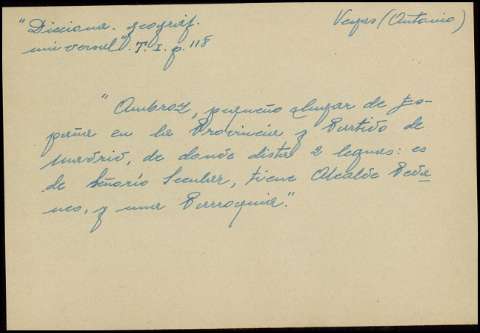 "Dicciona. geográf. Vegas (Antonio)
universal". T. I. p. 118
"Ambroz, pequeño lugar de Es-
paña en la Provincia y Partido de
Madrid, de donde dista 2 leguas: es
de Señorío Secular, tiene Alcalde Pedá-
neo, y una Parroquia".